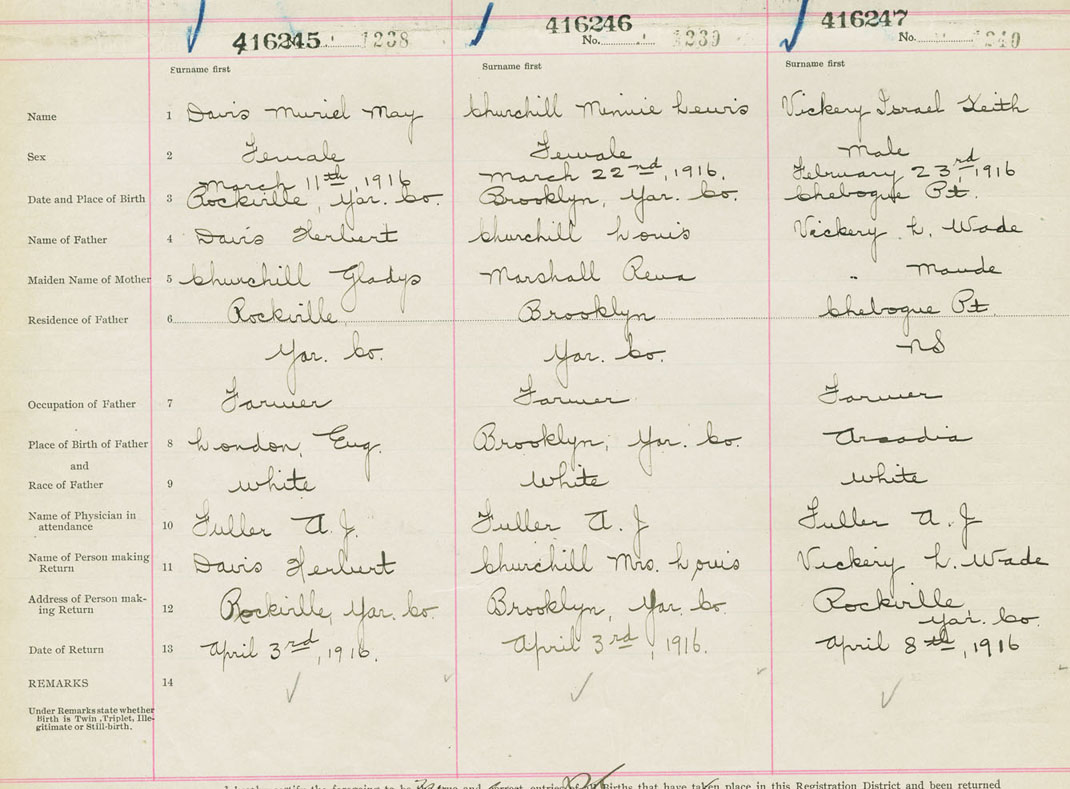 416245 1238
416246 No. 1239
416247 No. 1240
Surname first Surname first Surname first
Name 1 Davis Muriel May Churchill Minnie Lewis Vickery Israel Keith
Sex 2 Female Female Male
March 11th, 1916 March 22nd, 1916. February 23rd, 1916
Date and Place of Birth 3 Rockville, Yar. Co. Brooklyn, Yar. Co. Chebogue Pt.
Name of Father 4 Davis Herbert Churchill Louis Vickery L. Wade
Maiden Name of Mother 5 Churchill Gladys Marshall Reva " Maude
Residence of Father 6 Rockville Brooklyn Chebogue Pt.
Yar. Co. Yar. Co. NS
Occupation of Father 7 Farmer Farmer Farmer
Place of Birth of Father 8 London, Eng. Brooklyn, Yar. Co. Arcadia
and
Race of Father 9 White White White
Name of Physician in
attendance 10 Fuller A. J. Fuller A. J Fuller A. J
Name of Person making
Return 11 Davis Herbert Churchill Mrs. Louis Vickery L. Wade
Address of Person mak-
ing Return 12 Rockville, Yar. Co. Brooklyn, Yar. Co. Rockville,
Yar. Co.
Date of Return 13 April 3rd, 1916. April 3rd, 1916. April 8th, 1916
REMARKS 14
Under Remarks state whether
Birth is Twin, Triplet, Ille-
gitimate or Still-birth.
I hereby certify the foregoing to be true and correct entries of all Births that have taken place in this Registration District and been returned